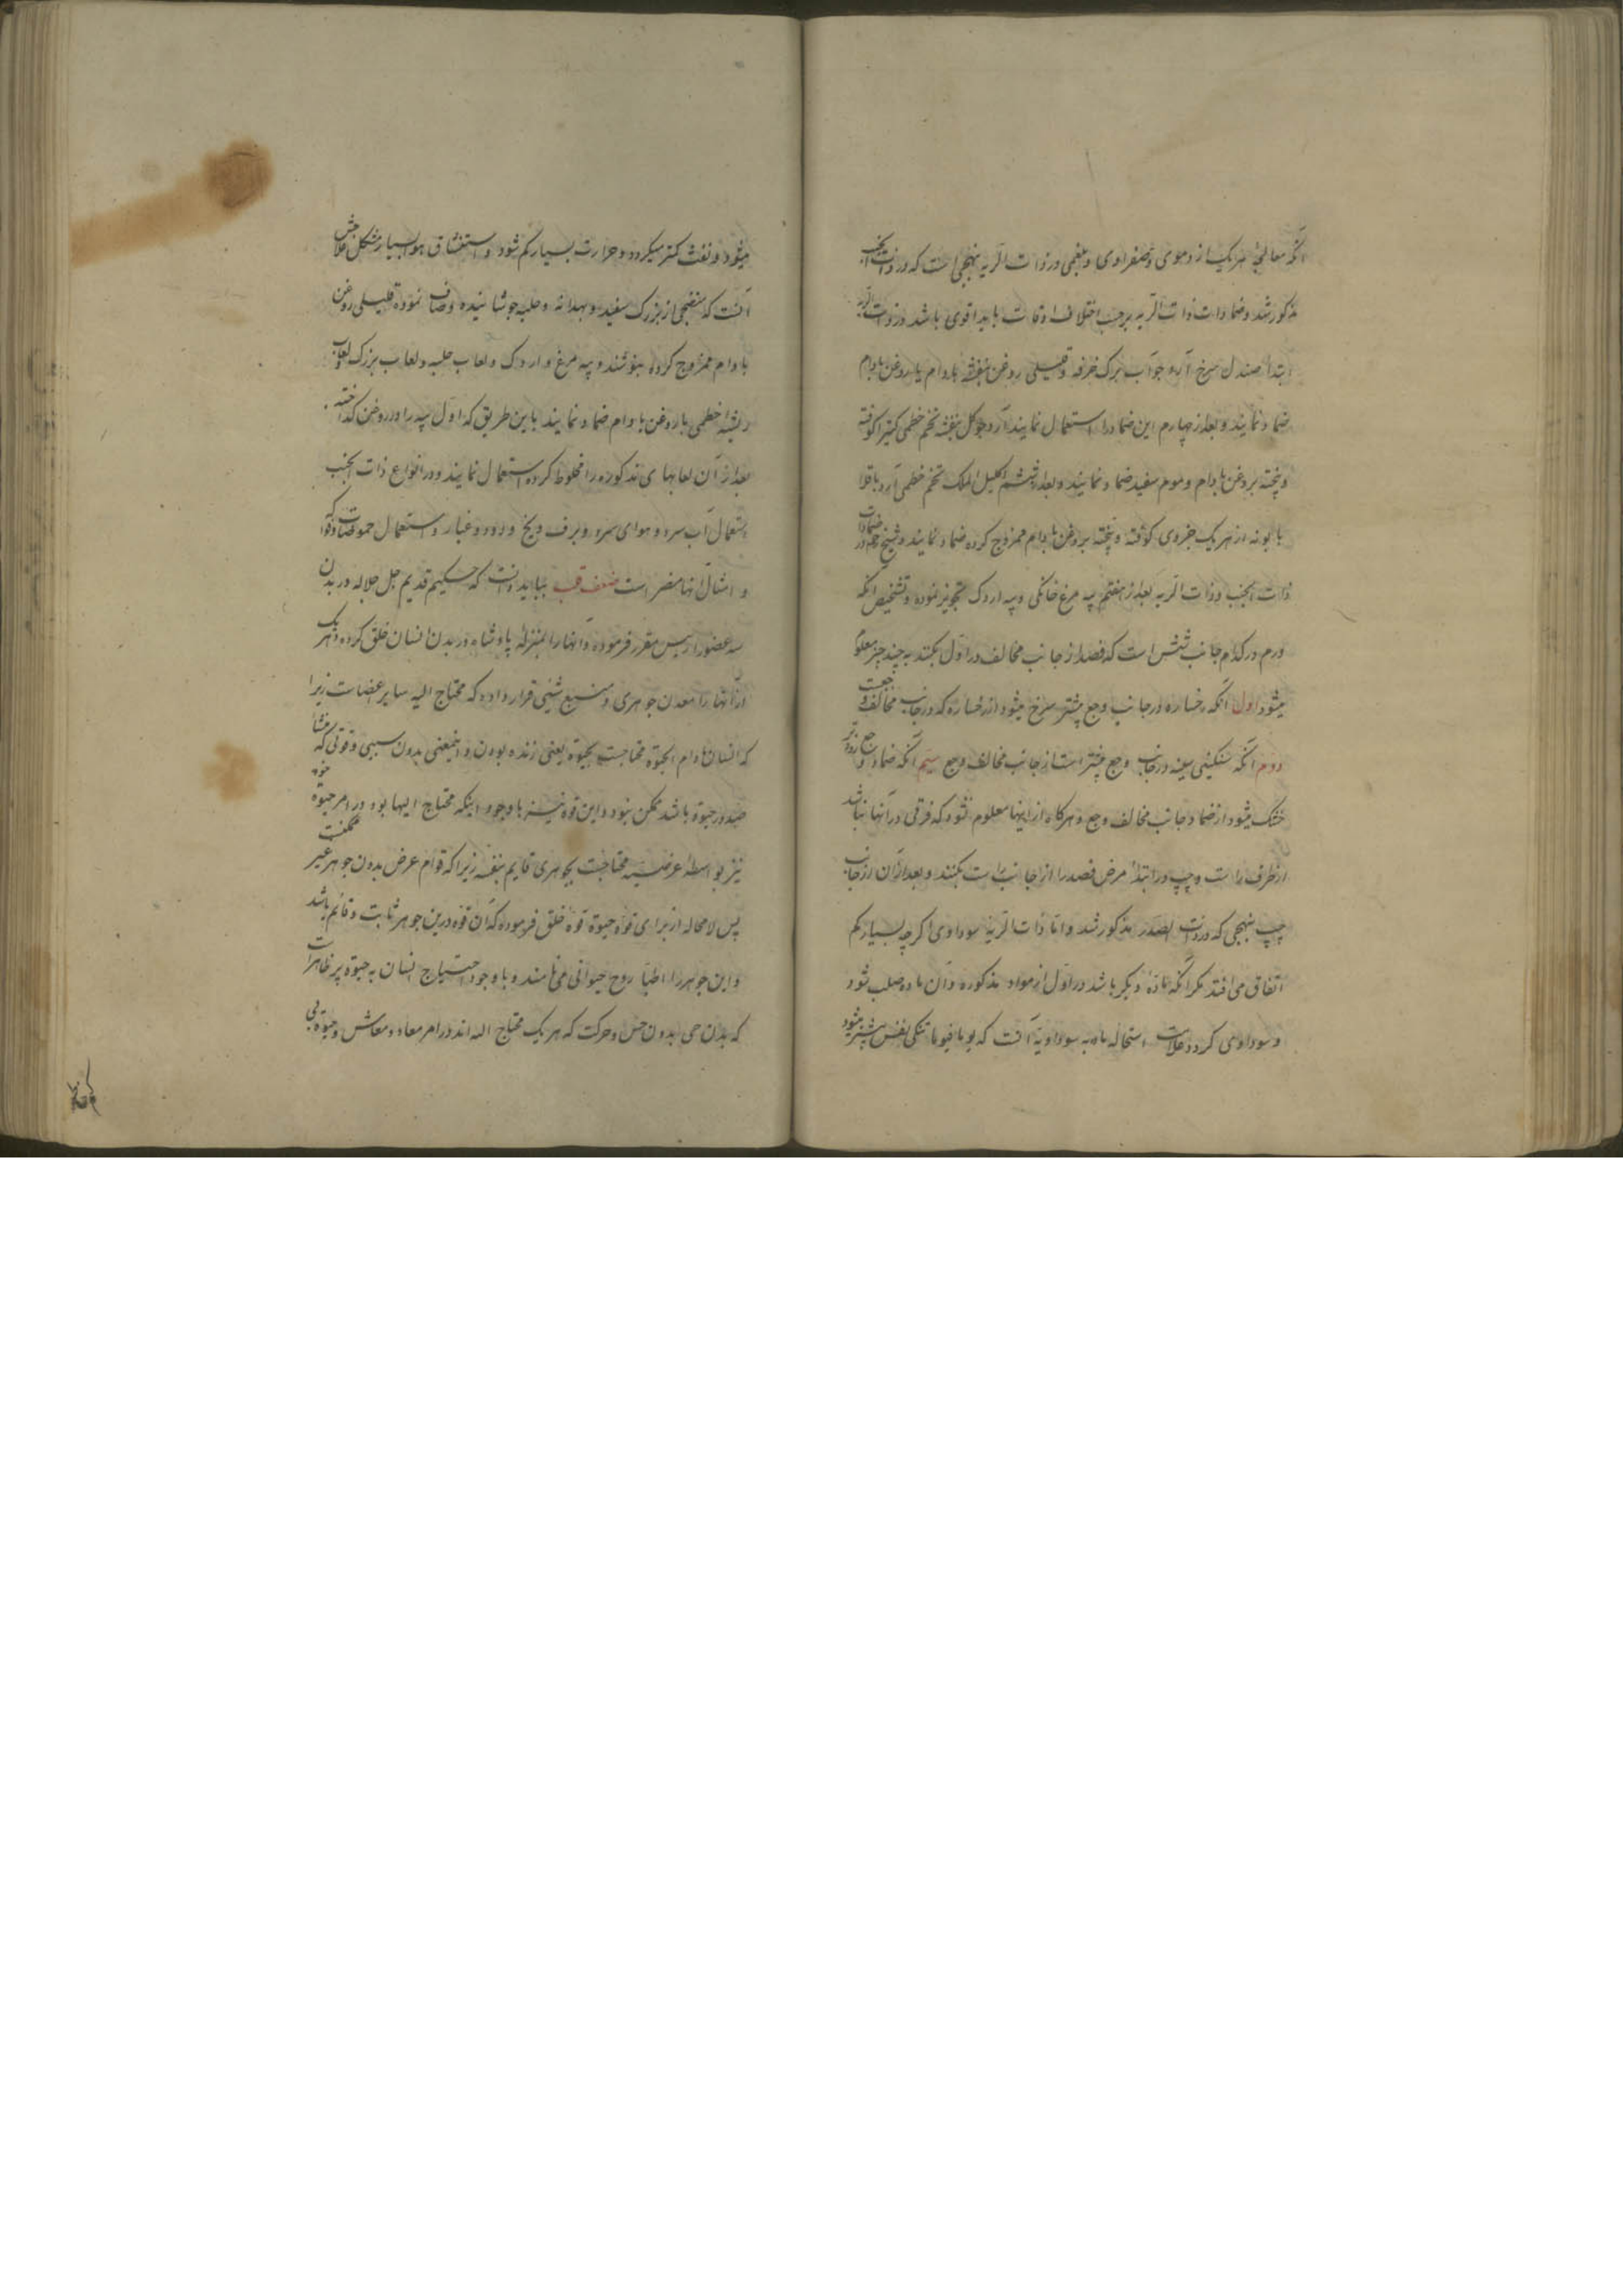 آنکه معالجهٔ هر یک از دموی و صفراوی و بلغمی در ذات الریه بنهجی است که در ذات الجنب
مذکور شد و ضمادات ذات الریه بر حسب اختلاف اوقات باید اقوی باشد در ذات الریه
ابتدا صندل سرخ آرد جو آب برک خرفه و قلیلی روغن بنفشه بادام یا روغن بادام
ضماد نمایند و بعد از چهارم این ضماد را استعمال نمایند آرد جو کل بنفشه تخم خطمی کتیرا کوفته
و پخته بروغن بادام و موم سفید ضماد نمایند و بعد از ششم اکلیل الملک تخم خطمی آرد باقلا
بابونه از هر یک جزوی کوفته و پخته بروغن بادام ممزوج کرده ضماد نمایند و شیخ در ضمادات
ذات الجنب و ذات الریه بعد از هفتم پیه مرغ خانکی و پیه اردک تجویز نموده و تشخیص آنکه
ورم در کدام جانب شش است که فصد از جانب مخالف در اول بکنند به چند چیز معلوم
میشود اول آنکه رخساره در جانب وجع بیشتر سرخ میشود از رخساره که در جانب مخالف وجعست
دوم آنکه سنکینی سینه در جانب وجع بیشتر است از جانب مخالف وجع سیم آنکه ضماد در جانب وجع زودتر
خشک میشود از ضماد جانب مخالف وجع و هر کاه از اینها معلوم نشود که فرقی در آنها نباشد
از طرف راست و چپ در ابتدا مرض فصد را از جانب راست بکنند و بعد از آن از جانب
چپ بنهجی که در ذات الصدر مذکور شد و اما ذات الریه سوداوی اکر چه بسیار کم
اتفاق می افتد مکر آنکه مادهٔ دیکر باشد در اول از مواد مذکوره و آن ماده صلب شود
و سوداوی کردد و علامت استحاله ماده به سوداویه آنست که یوما فیوما تنکی نفس بیشتر میشود
میشود و نفث کمتر میکردد و حرارت بسیار کم شود و استنشاق هوا بسیار مشکل علاجش
آنست که منضجی از بزرک سفید و بهدانه و حلبه جوشانیده و صاف نموده قلیلی روغن
بادام ممزوج کرده بنوشند و پیه مرغ و اردک و لعاب حلبه و لعاب بزرک لعاب
ریشهٔ خطمی با روغن بادام ضماد نمایند باین طریق که اول پیه را در روغن کداخته
بعد از آن لعابهای مذکوره را مخلوط کرده استعمال نمایند و در انواع ذات الجنب
استعمال آب سرد و هوای سرد و برف و یخ و دود و غبار و استعمال حموضات
و امثال آنها مضر است ضعف قلب بباید دانست که حکیم قدیم جل جلاله در بدن
سه عضو را رئیس مقرر فرموده و آنها را بمنزلهٔ پادشاه در بدن انسان خلق کرده و هر یک
از آنها را معدن جوهری و منبع شیئی قرار داده که محتاج الیه سایر اعضاست زیرا
که انسان مادام الحیوة محتاجست بحیوة یعنی زنده بودن و اینمعنی بدون سببی و قوتی که منشا
صدور حیوة باشد ممکن نبود و این قوه نیز با وجود اینکه محتاج الیها بود در امر حیوة
نیز بواسطهٔ عرضیه محتاجست بجوهری قایم بنفسه زیرا که قوام عرض بدون جوهر غیر ممکنست
پس لا محاله از برای قوه حیوة قوه خلق فرموده که آن قوه درین جوهر ثابت و قائم باشد
و این جوهر را اطبا روح حیوانی می نامند و با وجود احتیاج انسان به حیوة پر ظاهر است
که بدن حی بدون حس و حرکت که هر یک محتاج الیه اند در امر معاد و معاش و حیوة بی